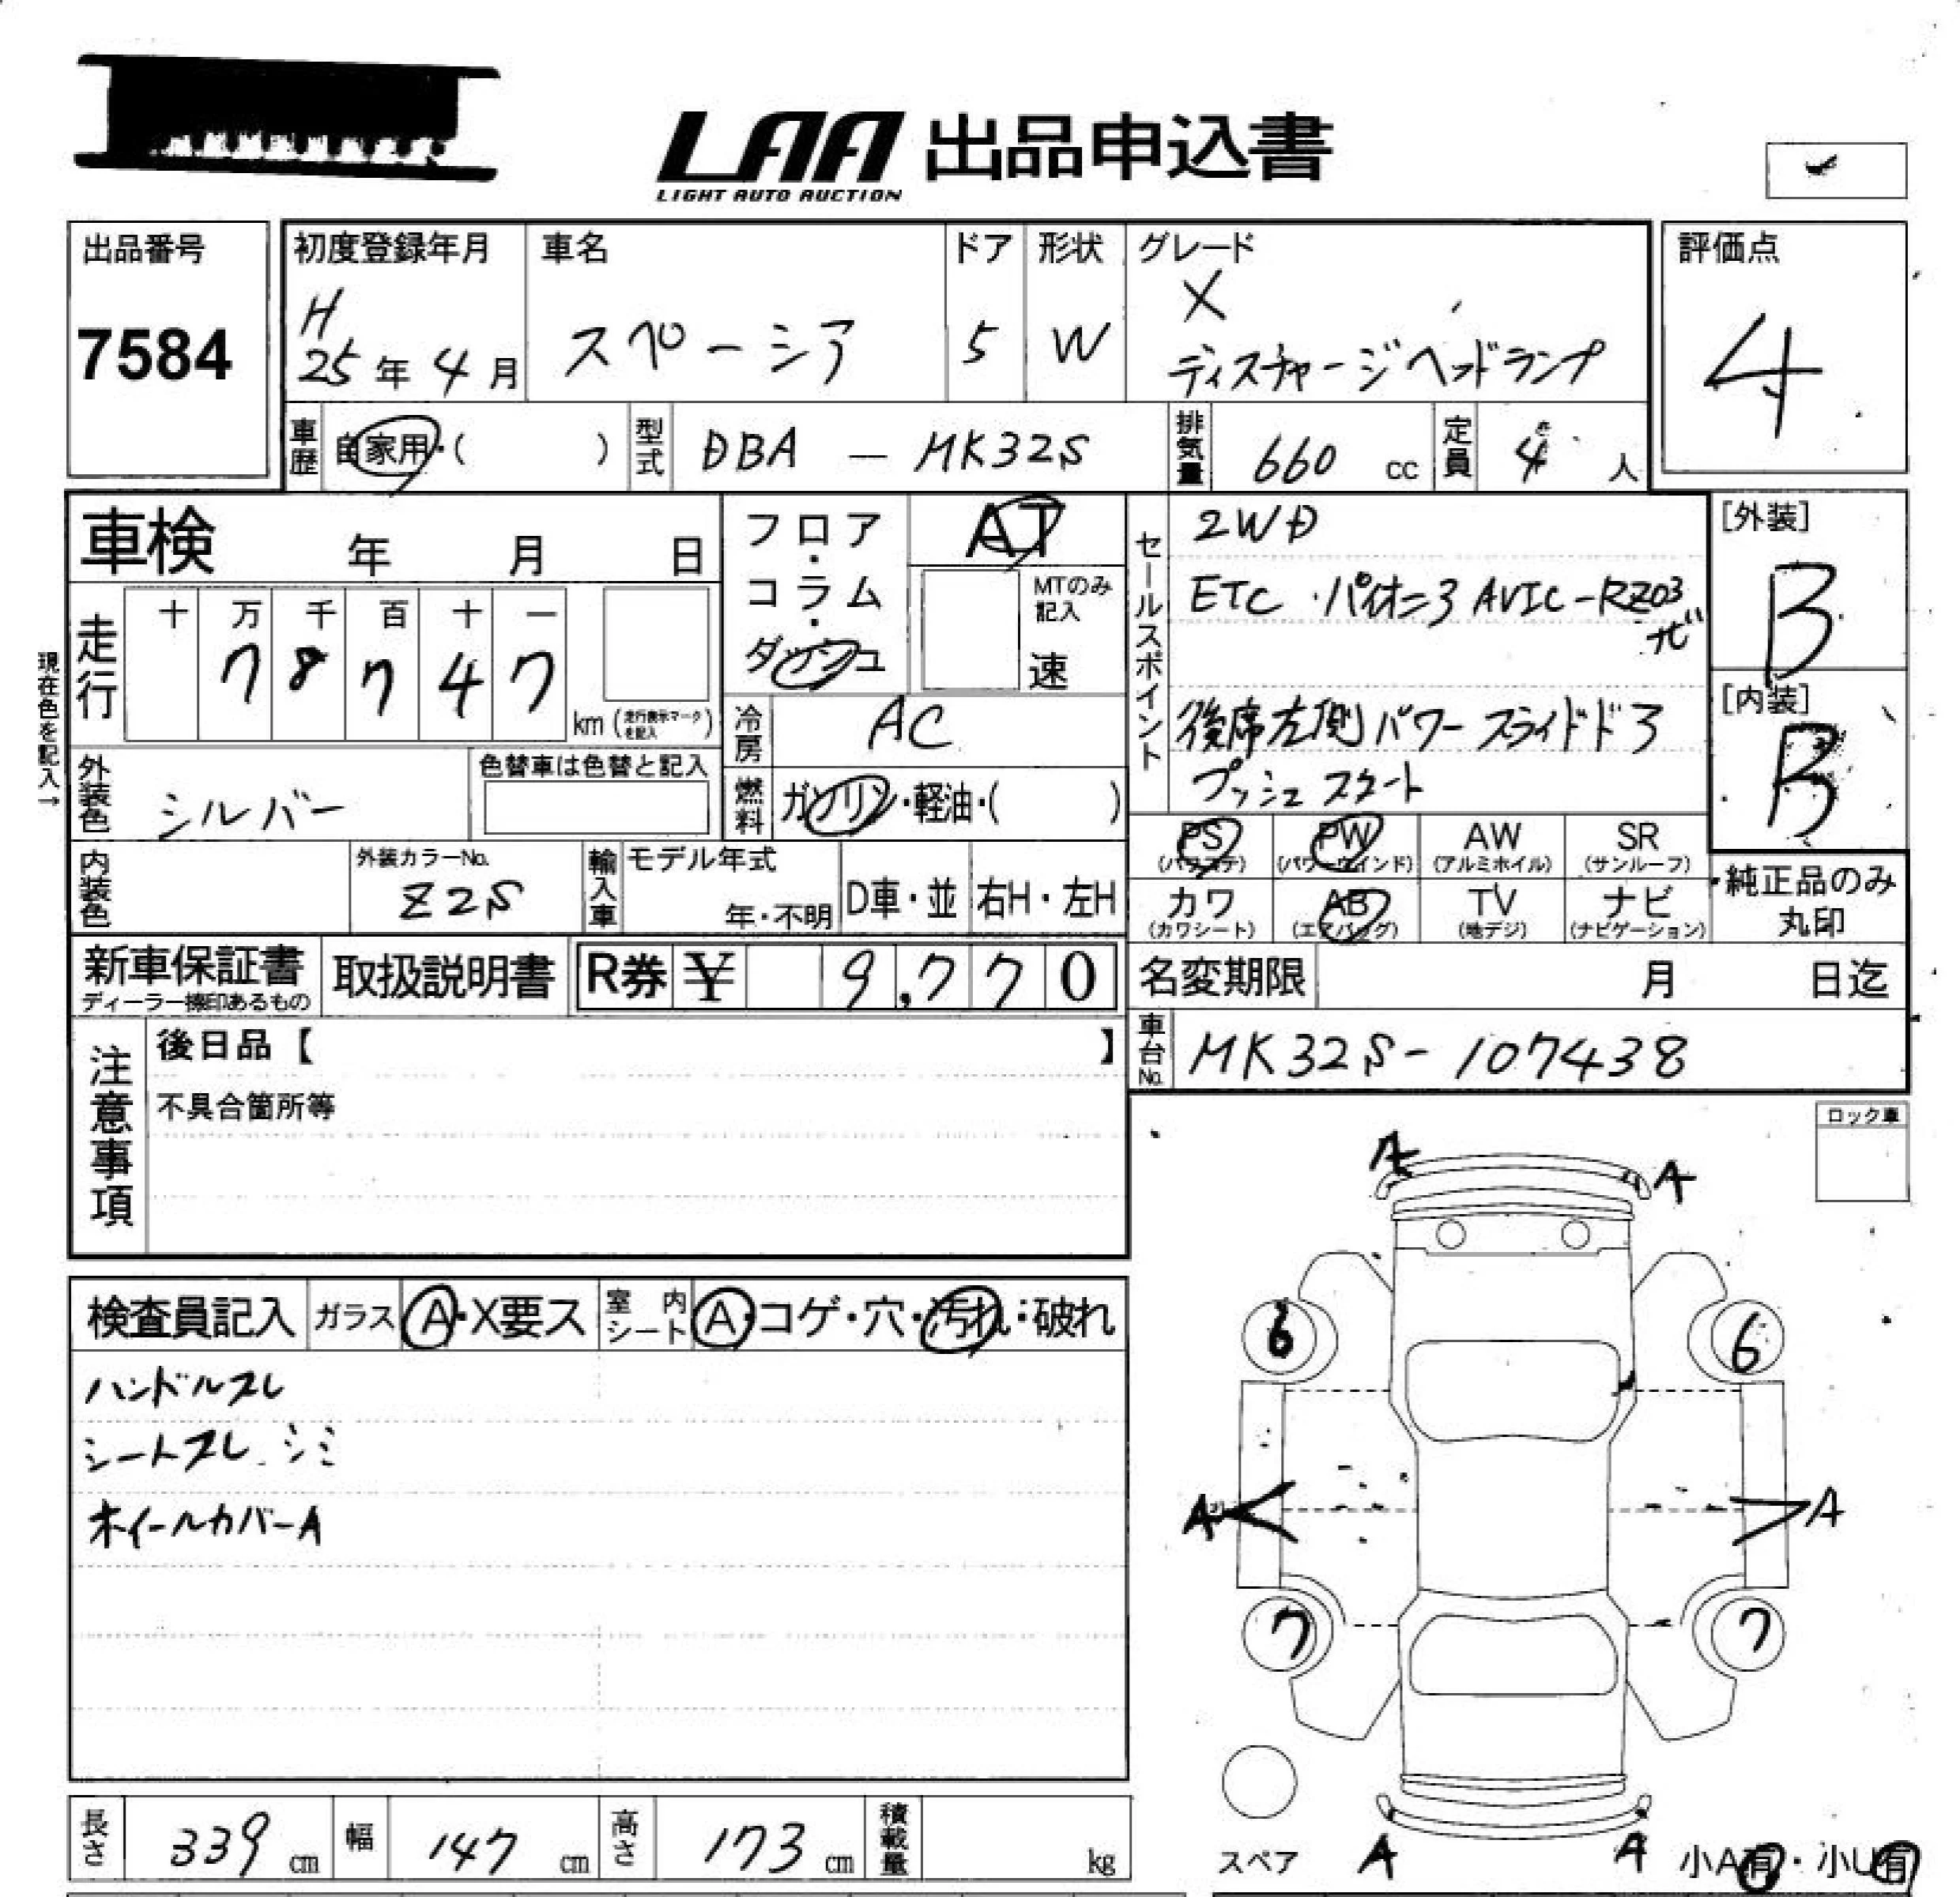 LAA 出品申込書
LIGHT AUTO AUCTION
出品番号
7584
初度登録年月
H
25年 4月
車名
スペーシア
ドア
5
形状
W
グレード
X
ディスチャージヘッドランプ
評価点
4
車歴
自家用・( )
型式
DBA — MK32S
排気量
660 cc
定員
4 人
車検 年 月 日
フロア・コラム・ダッシュ
AT
MTのみ記入
速
走行
十 万 千 百 十 一
7 8 7 4 7
km (走行表示マークを記入)
現在色を記入→
冷房
AC
外装色
シルバー
色替車は色替と記入
燃料
ガソリン・軽油・( )
内装色
外装カラーNo.
Z2S
輸入車
モデル年式
年・不明
D車・並
右H・左H
セールスポイント
2WD
ETC・パイオニヲ AVIC-RZ03
ナビ
後席左側パワースライドドヲ
プッシュスタート
[外装]
B
[内装]
B
PS
(パワステ)
PW
(パワーウインド)
AW
(アルミホイル)
SR
(サンルーフ)
カワ
(カワシート)
AB
(エアバッグ)
TV
(地デジ)
ナビ
(ナビゲーション)
純正品のみ
丸印
新車保証書
ディーラー捺印あるもの
取扱説明書
R券 ¥ 9,770
名変期限 月 日迄
車台No.
MK32S-107438
注意事項
後日品【 】
不具合箇所等
ロック車
検査員記入
ガラス
A・X要ス
室内シート
A・コゲ・穴・汚れ・破れ
ハンドルスレ
シートスレ.シミ
ホイールカバーA
A
A
6
6
A
A
7
7
スペア
A
A
小A有・小U有
長さ
339 cm
幅
147 cm
高さ
173 cm
積載量
kg